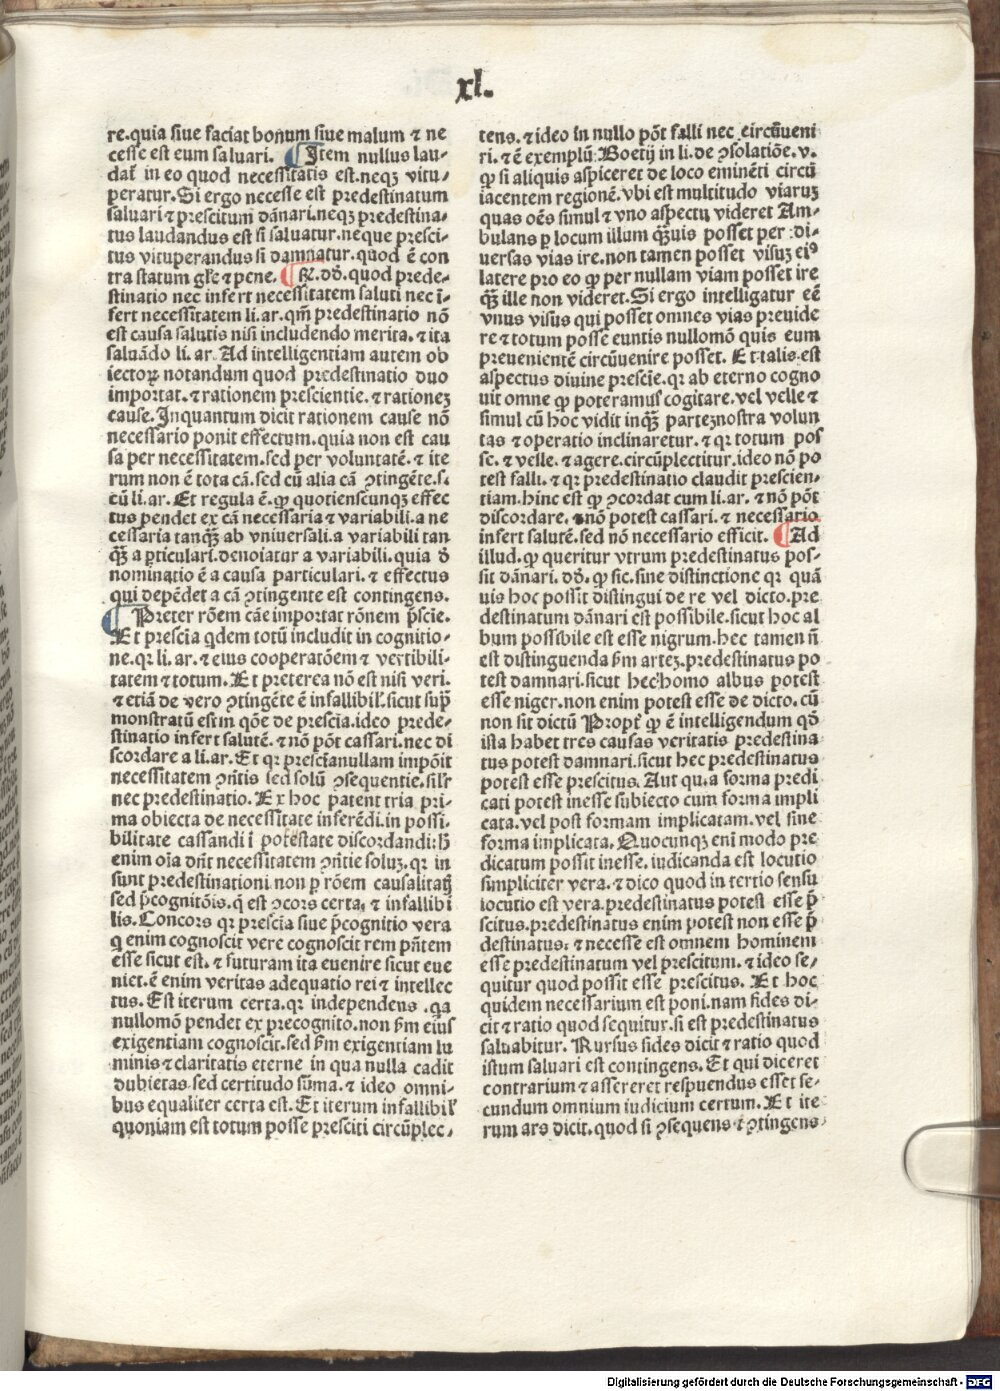 xl.
re.quia siue faciat bonum siue malum ⁊ ne
cesse est eum saluari. ¶ Item nullus lau-
dat̄ in eo quod necessitatis est.neqꝫ vitu-
peratur.Si ergo necesse est predestinatum
saluari ⁊ prescitum dānari.neqꝫ predestina-
tus laudandus est si saluatur.neque presci-
tus vituperandus si damnatur.quod ē con
tra statum gl̄e ⁊ pene. ¶ R̄.dō.quod prede-
stinatio nec infert necessitatem saluti nec ī-
fert necessitatem li.ar.qm̄ predestinatio nō
est causa salutis nisi includendo merita.⁊ ita
saluādo li.ar. Ad intelligentiam autem ob
iectoꝝ notandum quod predestinatio duo
importat.⁊ rationem prescientie.⁊ rationeꝫ
cause.Inquantum dicit rationem cause nō
necessario ponit effectum.quia non est cau
sa per necessitatem.sed per voluntatē.⁊ ite
rum non ē tota cā.sed cū alia cā ꝯtingēte.s.
cū li.ar. Et regula ē.ꝙ quotienscunqꝫ effec
tus pendet ex cā necessaria ⁊ variabili.a ne
cessaria tanqꝫ̄ ab vniuersali.a variabili tan
qꝫ̄ a ꝑticulari.denoiatur a variabili.quia d̄
nominatio ē a causa particulari.⁊ effectus
qui depēdet a cā ꝯtingente est contingens.
¶ Preter rōem cāe importat rōnem p̄scie.
Et prescia qdem totū includit in cognitio-
ne.qꝛ li.ar.⁊ eius cooperatōem ⁊ vertibili-
tatem ⁊ totum. Et preterea nō est nisi veri.
⁊ etiā de vero ꝯtingēte ē infallibil̄.sicut sup̄
monstratū est in qōe de prescia.ideo prede-
stinatio infert salutē.⁊ nō pōt cassari.nec di
scordare a li.ar. Et qꝛ prescīa nullam impōit
necessitatem ꝯn̄tis sed solū ꝯsequentie.sil̄r
nec predestinatio. Ex hoc patent tria pri-
ma obiecta de necessitate inferēdi.in possi-
bilitate cassandi ī potestate discordandi:h̄
enim oīa dn̄t necessitatem ꝯn̄tie soluꝫ.qꝛ in
sunt predestinationi non ꝑ rōem causalitatꝭ
sed p̄cognitōis.q̄ est ꝯcors certa.⁊ infallibi
lis.Concors qꝛ prescīa siue p̄cognitio vera
q̄ enim cognoscit vere cognoscit rem pn̄tem
esse sicut est.⁊ futuram ita euenire sicut eue
niet.ē enim veritas adequatio rei ⁊ intellec
tus. Est iterum certa.qꝛ independens .qa
nullomō pendet ex precognito.non ẜm eius
exigentiam cognoscit.sed ẜm exigentiam lu
minis ⁊ claritatis eterne in qua nulla cadit
dubietas sed certitudo sūma.⁊ ideo omni-
bus equaliter certa est. Et iterum infallibil̄
quoniam est totum posse presciti circūplec-
tens.⁊ ideo in nullo pōt falli nec circūueni
ri.⁊ ē exemplū Boetij in li.de ꝯsolatiōe.v.
ꝙ si aliquis aspiceret de loco eminēti circū
iacentem regionē.vbi est multitudo viaruꝫ
quas oēs simul ⁊ vno aspectu videret Am-
bulans ꝑ locum illum qꝫ̄uis posset per di-
uersas vias ire.non tamen posset visuꝫ eiꝰ
latere pro eo ꝙ per nullam viam posset ire
qꝫ̄ ille non videret.Si ergo intelligatur eē
vnus visus qui posset omnes vias preuide
re ⁊ totum posse euntis nullomō quis eum
preuenientē circūuenire posset. Et talis est
aspectus diuine prescīe.qꝛ ab eterno cogno
uit omne ꝙ poteramus cogitare.vel velle ⁊
simul cū hoc vidit inqꝫ̄ parteꝫ nostra volun
tas ⁊ operatio inclinaretur.⁊ qꝛ totum pos
se.⁊ velle.⁊ agere.circūplectitur.ideo nō po
test falli.⁊ qꝛ predestinatio claudit prescien-
tiam.hinc est ꝙ ꝯcordat cum li.ar.⁊ nō pōt
discordare.⁊ nō potest cassari.⁊ necessatio
infert salutē.sed nō necessario efficit. ¶ Ad
illud.ꝙ queritur vtrum predestinatus pos-
sit dānari. dō.ꝙ sic.sine distinctione qꝛ quā
uis hoc possit distingui de re vel dicto.pre
destinatum dānari est possibile.sicut hoc al
bum possibile est esse nigrum.hec tamen n̄
est distinguenda ẜm arteꝫ.predestinatus po
test damnari.sicut hec homo albus potest
esse niger.non enim potest esse de dicto.cū
non sit dictū Propt̄ ꝙ ē intelligendum qō
ista habet tres causas veritatis predestina
tus potest damnari.sicut hec predestinatus
potest esse prescitus. Aut qu.a forma predi
cati potest inesse subiecto cum forma impli
cata.vel post formam implicatam.vel sine
forma implicata. Quocunqꝫ enī modo pre
dicatum possit inesse.iudicanda est locutio
simpliciter vera.⁊ dico quod in tertio sensu
locutio est vera.predestinatus potest esse p̄
scitus.predestinatus enim potest non esse p̄
destinatus.⁊ necesse est omnem hominem
esse predestinatum vel prescitum.⁊ ideo se-
quitur quod possit esse prescitus. Et hoc
quidem necessarium est poni.nam fides di-
cit ⁊ ratio quod sequitur.si est predestinatus
saluabitur. Rursus fides dicit ⁊ ratio quod
istum saluari est contingens. Et qui diceret
contrarium ⁊ assereret respuendus esset se-
cundum omnium iudicium certum. Et ite
rum ars dicit.quod si ꝯsequens ē ꝯtingens
Digitalisierung gefördert durch die Deutsche Forschungsgemeinschaft - DFG